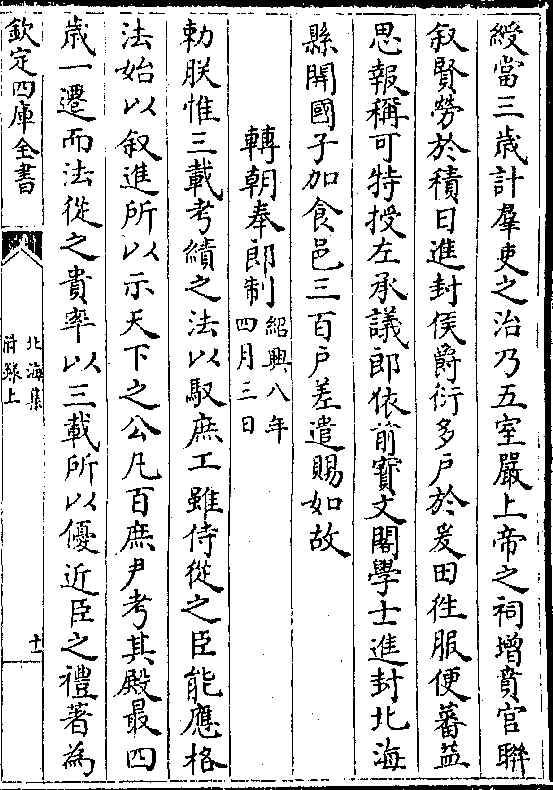 綬當三歲計羣吏之治乃五室嚴上帝之祠增賁官聨
叙賢勞於積日進封侯爵衍多户於爰田徃服便蕃益
思報稱可特授左承議郎依前寳文閣學士進封北海
縣開國子加食邑三百户差遣賜如故
轉朝奉郎制紹興八年四月三日
勅朕惟三載考績之法以馭庶工雖侍從之臣能應格
法始以叙進所以示天下之公凡百庶尹考其殿最四
歲一遷而法從之貴率以三載所以優近臣之禮著為
欽定四庫全書
北海集
附録上
十一